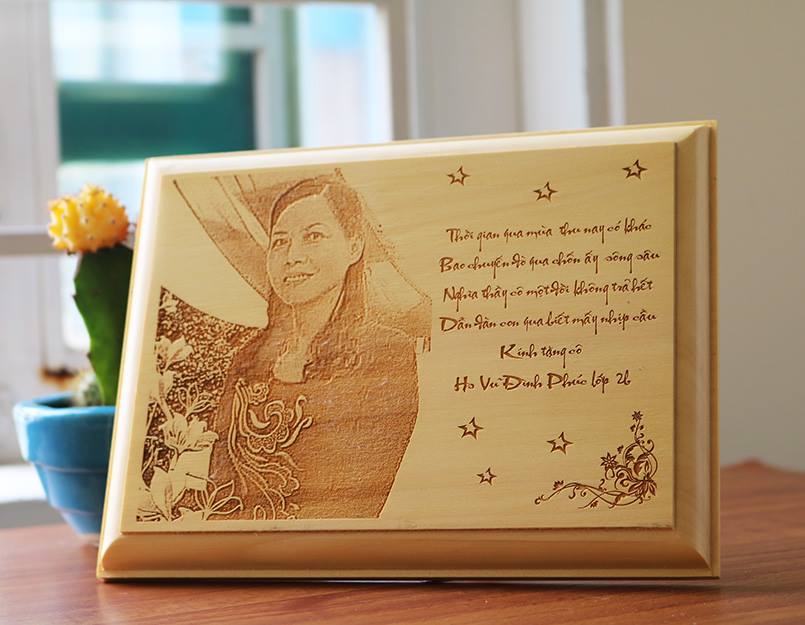 Thời gian qua mùa thu nay có khác
Bao chuyến đò qua chốn ấy sông sâu
Nghĩa thầy cô một đời không trả hết
Dẫn dàn con qua biết mấy nhịp cầu
Kính tặng cô
Hs Vũ Đình Phúc lớp 2b